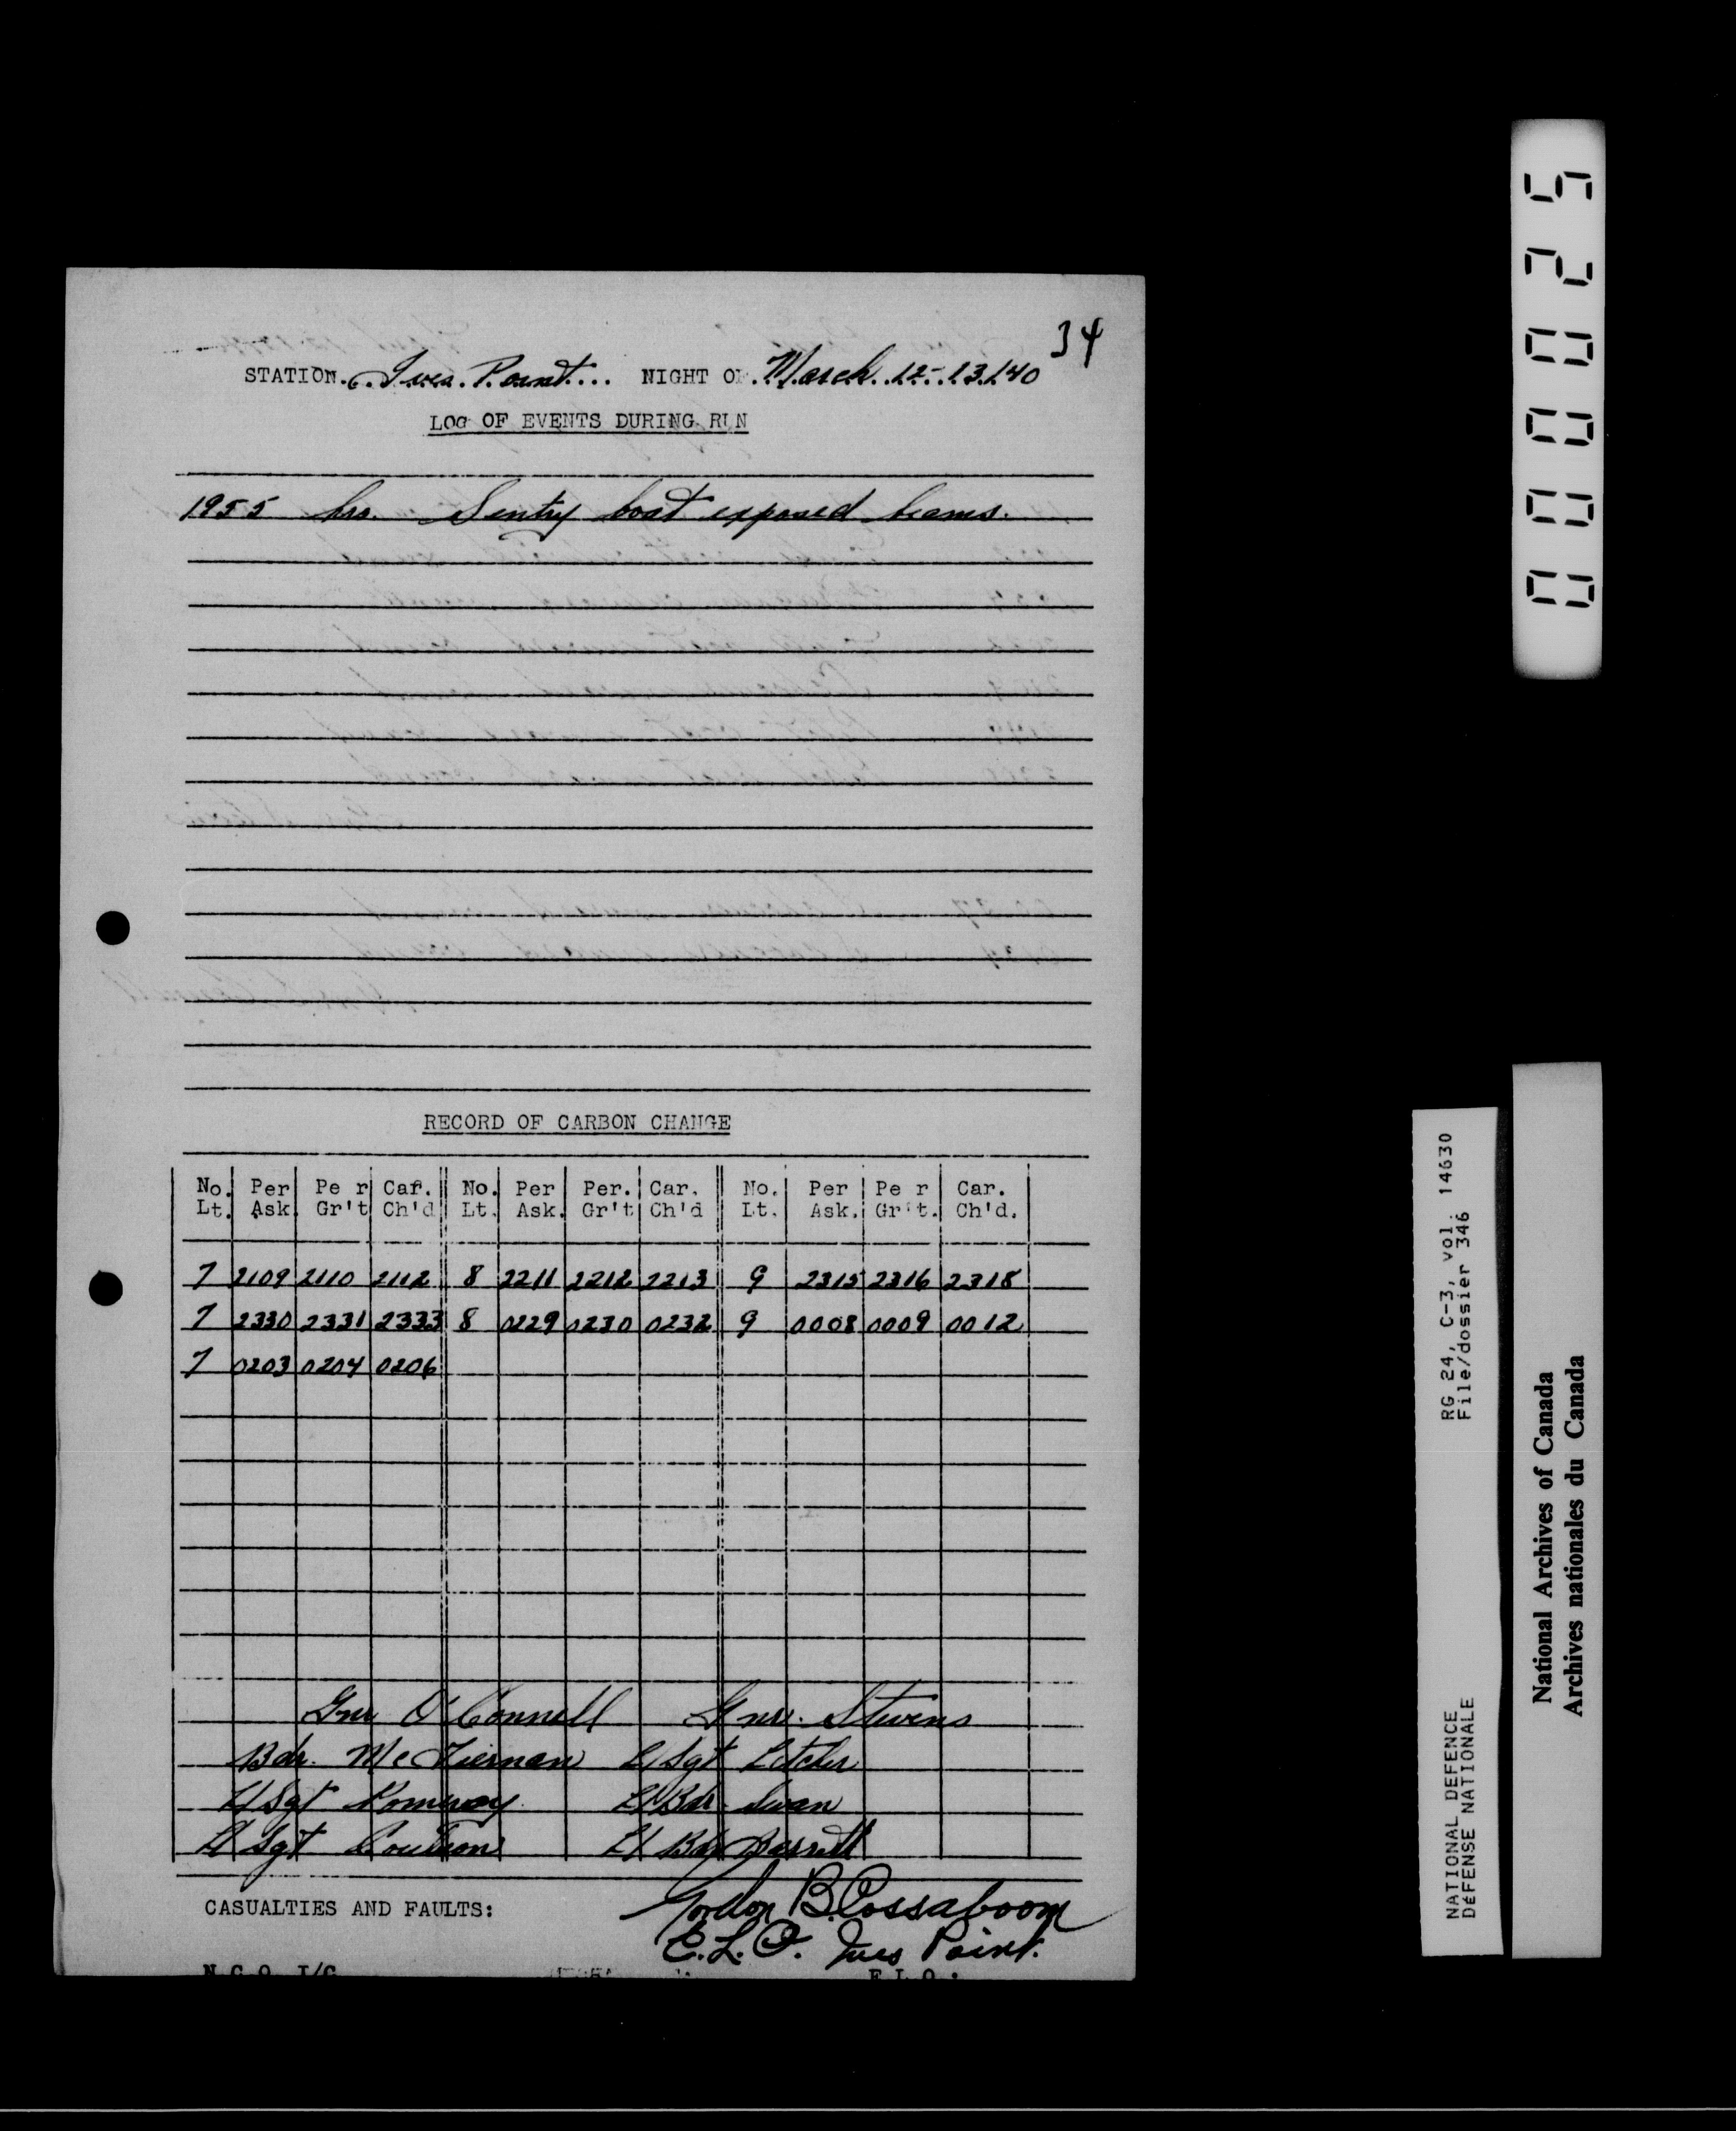 34
STATION. Ives Point... NIGHT OF. March 12-13/40
LOG OF EVENTS DURING RUN
1955 hrs. Sentry boat exposed beams.
RECORD OF CARBON CHANGE
No. Per Pe r Car. No. Per Per. Car. No. Per Pe r Car.
Lt. Ask. Gr't Ch'd Lt. Ask. Gr't Ch'd Lt. Ask. Gr't. Ch'd.
7 2109 2110 2112 8 2211 2212 2213 9 2315 2316 2318
7 2330 2331 2333 8 0229 0230 0232 9 0008 0009 0012
7 0203 0204 0206
Gnr O'Connell Gnr. Stevens
Bdr. McTiernan L/Sgt Letcher
L/Sgt Pomeroy L/Bdr Swan
L/Sgt L/Bdr
CASUALTIES AND FAULTS: Gordon B. Cossaboom
E.L.O. Ives Point.
N.C.O. I/C E.L.O.:
000025
RG 24, C-3, vol. 14630
File/dossier 346
NATIONAL DEFENCE
DÉFENSE NATIONALE
National Archives of Canada
Archives nationales du Canada